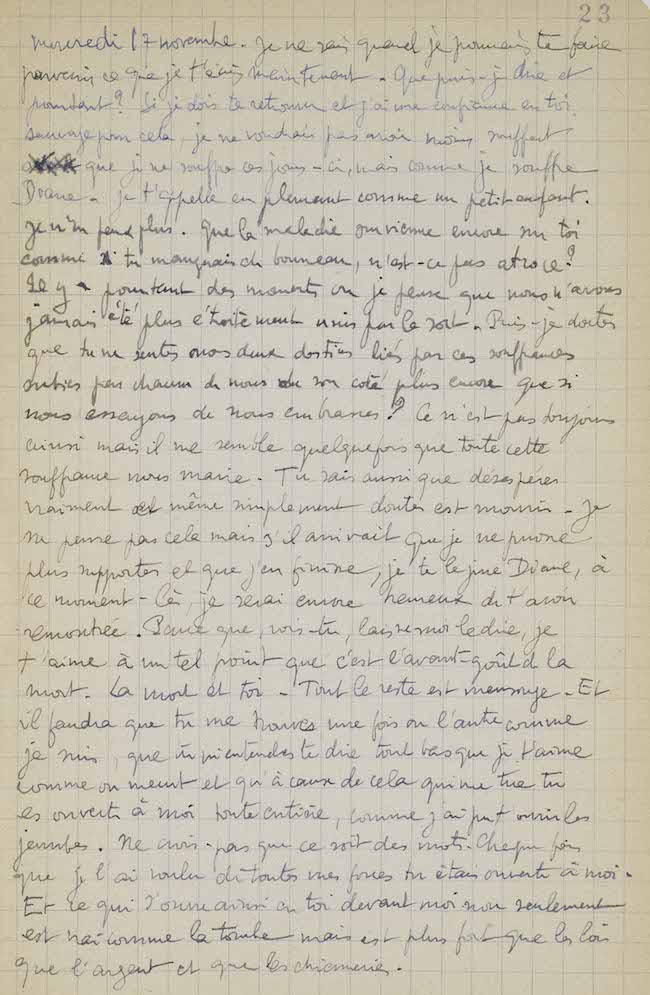 23
mercredi 17 novembre. Je ne sais quand je pourrais te faire
parvenir ce que je t'écris maintenant. Que puis-je dire et
pourtant? Si je dois te retrouver et j'ai une confiance en toi
sauvage pour cela, je ne voudrais pas avoir moins souffert
que je ne souffre ces jours-ci, mais comme je souffre
Diane. Je t'appelle en pleurant comme un petit enfant.
Je n'en peux plus. Que la maladie survienne encore sur toi
comme si tu manquais de bourreau, n'est-ce pas atroce?
Il y a pourtant des moments où je pense que nous n'avons
jamais été plus étroitement unis par le sort. Puis-je douter
que tu ne sentes nos deux destins liés par ces souffrances
subies par chacun de nous de son côté plus encore que si
nous essayons de nous embrasser? Ce n'est pas toujours
ainsi mais il me semble quelquefois que toute cette
souffrance nous marie. Tu sais aussi que désespérer
vraiment et même simplement douter est mourir. Je
ne pense pas cela mais s'il arrivait que je ne puisse
plus supporter et que j'en finisse, je te le jure Diane, à
ce moment-là, je serai encore heureux de t'avoir
rencontrée. Parce que, vois-tu, laisse moi le dire, je
t'aime à un tel point que c'est l'avant-goût de la
mort. La mort et toi. Tout le reste est mensonge. Et
il faudra que tu me trouves une fois ou l'autre comme
je suis, que tu m'entendes te dire tout bas que je t'aime
comme on meurt et qu'à cause de cela qui me tue tu
es ouverte à moi toute entière, comme j'ai pu t'ouvrir les
jambes. Ne crois pas que ce soit des mots. Chaque fois
que je l'ai voulu de toutes mes forces tu étais ouverte à moi.
Et ce qui s'ouvre ainsi en toi devant moi non seulement
est vrai comme la tombe mais est plus fort que les lois
que l'argent et que les chicaneries.